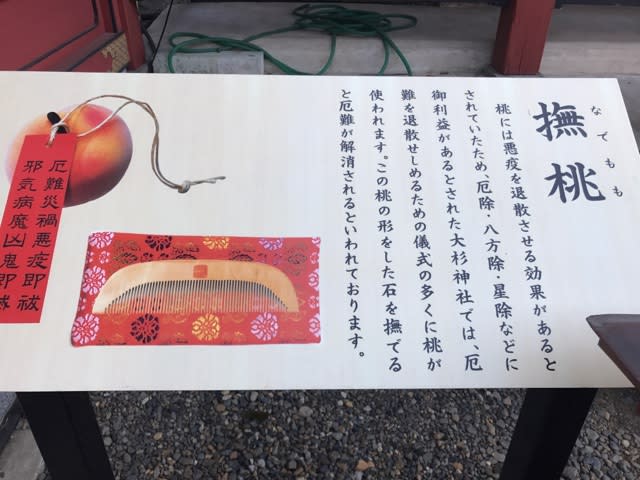 撫桃
なでもも
桃には悪疫を退散させる効果があると
されていたため、厄除・八方除・星除などに
御利益があるとされた大杉神社では、厄
難を退散せしめるための儀式の多くに桃が
使われます。この桃の形をした石を撫でる
と厄難が解消されるといわれております。
厄難災禍悪疫即祓
邪気病魔凶鬼即滅